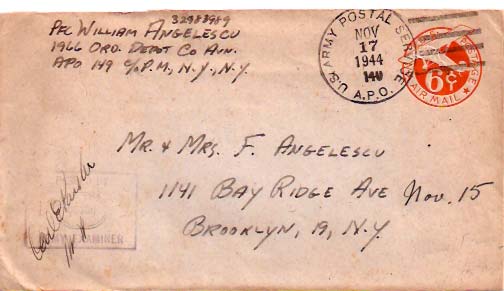 32983989
Pfc William Angelescu
1966 Ord. Depot Co Avn.
APO 149 c/o P.M., N.Y., N.Y.
U.S. ARMY POSTAL SERVICE
NOV
17
1944
A.P.O.
6¢
AIR MAIL
Mr. & Mrs. F. Angelescu
1141 Bay Ridge Ave
Nov. 15
Brooklyn, 19, N.Y.
EXAMINER